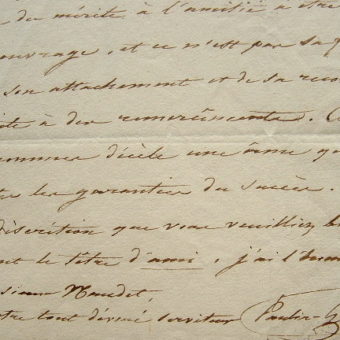 du mérite à l'amitié a
ouvrage, et ce n'est pas sa
son attachement et de sa
à des remerciements.
décèle une âme
les garanties du succès.
discrétion que vous veuillez
le titre d'ami, j'ai l'hon
Naudet,
tout dévoué serviteur